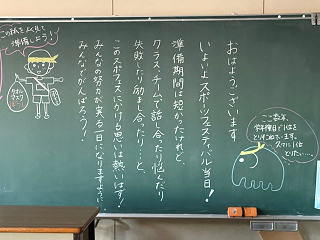 おはようございます
いよいよスポーツフェスティバル当日!
準備期間は短かったけれど、
クラス・チームで話し合ったり悩んだり
失敗したり励まし合ったり…と、
このスポフェスにかける思いは熱いはず!
みんなの努力が光る一日になりますように…!
みんなでがんばろう!
この紙をよく見て
準備しよう!
タオル
マスク
ここ数年、
学年種目で1位を
とりにがしています。
たまには1位
とりたい…。